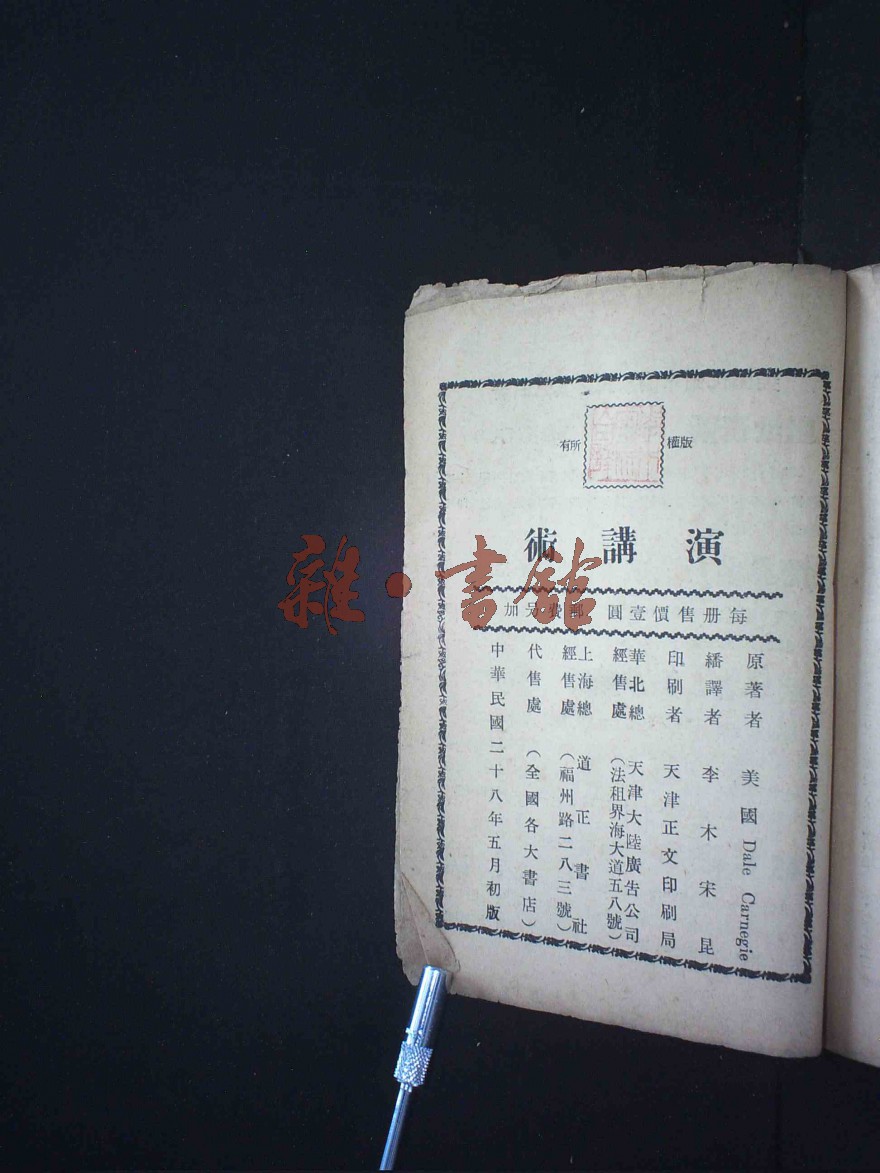 版權所有
演講術
每册售價壹圓 郵費另加
原著者 美國 Dale Carnegie
繙譯者 李木 宋昆
印刷者 天津正文印刷局
華北總經售處 天津大陸廣告公司
(法租界海大道五八號)
上海總經售處 道正書社
(福州路二八三號)
代售處 (全國各大書店)
中華民國二十八年五月初版
雜·書館